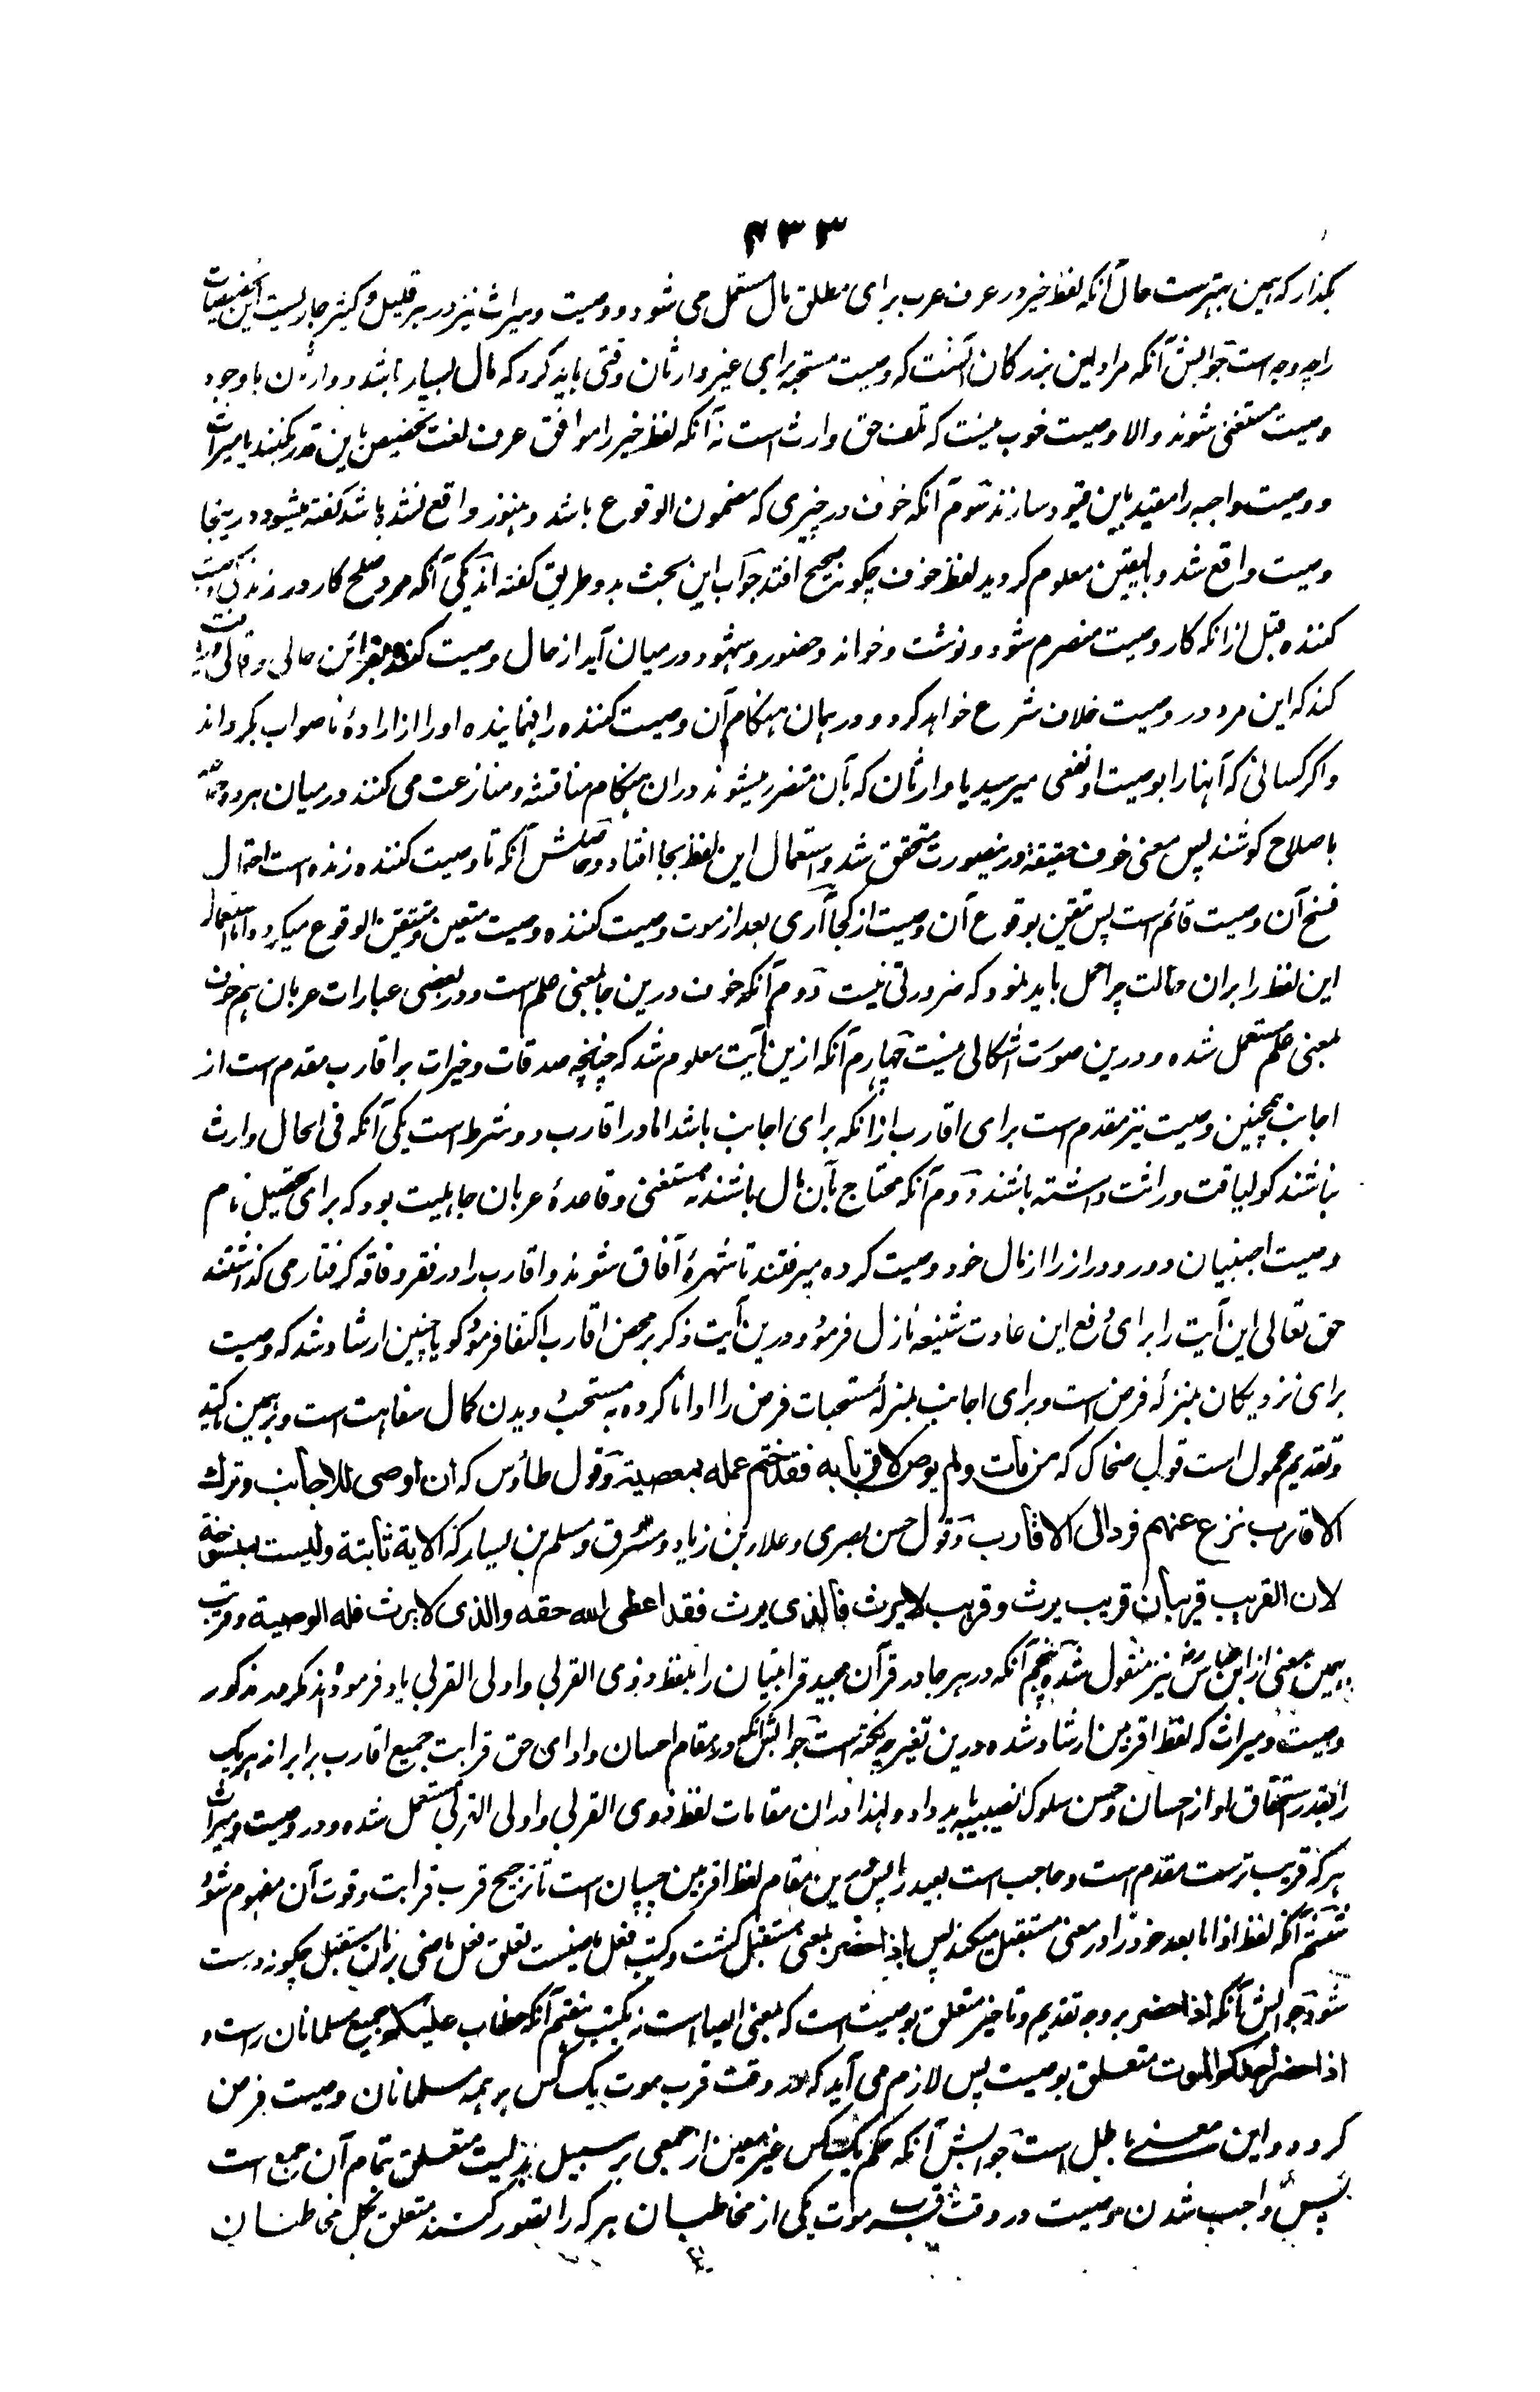 ۴۳۳
بگذار که همین بهترست حال آنکه لفظ خیر در عرف عرب برای مطلق مال مستعمل می شود و وصیت و میراث نیز در هر قلیل و کثیر جاریست این تخصیصات
را چه وجه است جوابش آنکه مراد این بزرگان آنست که وصیت مستحبه برای غیر وارثان وقتی باید کرد که مال بسیار باشد و وارثان باوجود
وصیت مستغنی شوند والا وصیت خوب نیست که تلف حق وارث است نه آنکه لفظ خیر را موافق عرف لغت تخصیص باین قدر بکنند یا میراث
و وصیت واجبه را مقید باین قیود سازند سوم آنکه خوف در چیزی که مضمون الوقوع باشد و هنوز واقع نشده باشد گفته میشود و درینجا
وصیت واقع شد و بالیقین معلوم گردید لفظ خوف چگونه صحیح افتد جواب این بحث بدو طریق گفته اند یکی آنکه مرد صلح کار در زندگی وصیت
کننده قبل ازانکه کار وصیت منصرم شود و نوشت و خواند و حضور و شهود درمیان آید از حال وصیت کننده بقرائن حالی و قالی دریافت
کند که این مرد در وصیت خلاف شرع خواهد کرد و در همان هنگام آن وصیت کننده را فهمانیده او را از ارادهٔ ناصواب بگرداند
و اگر کسانی که آنها را بوصیت او نفعی میرسید یا وارثان که بآن متضرر میشوند دران هنگام مناقشه و منازعت می کنند درمیان هر دو
باصلاح کوشند پس معنی خوف حقیقة درینصورت متحقق شد و استعمال این لفظ بجا افتاد و حاصلش آنکه تا وصیت کننده زنده است احتمال
فسخ آن وصیت قائم است پس تیقن بوقوع آن وصیت از کجا آری بعد از موت وصیت کننده وصیت متعین و متیقن الوقوع میگردد اما استعمال
این لفظ را بران حالت چرا حمل باید نمود که ضرورتی نیست دوم آنکه خوف درین جا بمعنی علم است و در بعضی عبارات عربان هم خوف
بمعنی علم مستعمل شده و درین صورت اشکالی نیست چهارم آنکه ازین آیت معلوم شد که چنانچه صدقات و خیرات بر اقارب مقدم است از
اجانب همچنین وصیت نیز مقدم است برای اقارب ازانکه برای اجانب باشد اما در اقارب دو شرط است یکی آنکه فی الحال وارث
نباشند گو لیاقت وراثت داشته باشند دوم آنکه محتاج بآن مال باشند نه مستغنی و قاعدهٔ عربان جاهلیت بود که برای تحصیل نام
وصیت اجنبیان دور و دراز را از مال خود وصیت کرده میرفتند تا شهرهٔ آفاق شوند و اقارب را در فقر و فاقه گرفتار می گذاشتند
حق تعالی این آیت را برای رفع این عادت شنیعه نازل فرمود و درین آیت ذکر بر محض اقارب اکتفا فرمود گویا چنین ارشاد شد که وصیت
برای نزدیکان بمنزلهٔ فرض است و برای اجانب بمنزلهٔ مستحبات فرض را ادا ناکرده به مستحب دویدن کمال سفاهت است و بر همین تاکید
و تقدیم محمول است قول ضحاک که من مات ولم یوص لاقربائه فقد ختم عمله بمعصیة و قول طاؤس که ان اوصی للاجانب وترك
الاقارب نزع عنهم فرد الی الاقارب و قول حسن بصری و علاء بن زیاد و مسروق و مسلم بن یسار که الایة ثابتة ولیست بمنسوخة
لان القریب قریبان قریب یرث وقریب لا یرث فالذی یرث فقد اعطی الله حقه والذی لا یرث فله الوصیة و قریب
بهمین معنی از ابن عباس رض نیز منقول شده پنجم آنکه در هر جا در قرآن مجید قرابتیان را بلفظ ذوی القربی و اولی القربی یاد فرموده اند مگر در مذکور
وصیت و میراث که لفظ اقربین ارشاد شده درین تغیر چه نکته است جوابش آنکه در مقام احسان و ادای حق قرابت جمیع اقارب برابراند هر یک
را بقدر استحقاق او از احسان و حسن سلوک نصیبی باید داد و لهذا دران مقامات لفظ ذوی القربی و اولی القربی مستعمل شده و در وصیت و میراث
هر که قریب ترست مقدم است و حاجب است بعید را پس درین مقام لفظ اقربین چسپان است تا ترجیح قرب قرابت و قوت آن مفهوم شود
ششم آنکه لفظ اذا ما بعد خود را در معنی مستقبل میکند پس اذا حضر بمعنی مستقبل گشت و کتب فعل ماضیست تعلق فعل ماضی بزمان مستقبل چگونه درست
شود جوابش آنکه اذا حضر بر وجه تقدیم و تاخیر متعلق بوصیت است که بمعنی ایصا است نه بکتب هفتم آنکه خطاب علیکم جمیع مسلمانان راست و
اذا حضر احدکم الموت متعلق بوصیت پس لازم می آید که در وقت قرب موت یک کس بر همه مسلمانان وصیت فرض
گردد و این معنی باطل است جوابش آنکه حکم یک کس غیر معین از جمعی بر سبیل بدلیت متعلق بتمام آن جمع است
پس واجب شدن وصیت در وقت قرب موت یکی از مخاطبان هر که را تصور کنند متعلق بکل مخاطبان